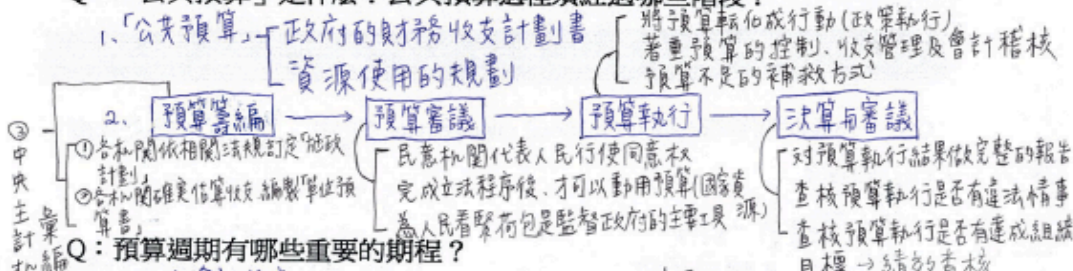 Q：「公共預算」是什麼？公共預算過程須經過哪些階段？
1、「公共預算」
政府的財務收支計劃書
資源使用的規劃
將預算轉化成行動(政策執行)
著重預算的控制、收支管理及會計稽核
預算不足的補救方式
2、預算籌編 → 預算審議 → 預算執行 → 決算与審議
①各机關依相關法規訂定「施政
計劃」
②各机關確実估算收支、編製「單位預
算書」
③中央主計机
彙編
民意机關代表人民行使同意权
完成立法程序後、才可以動用預算(國家資源)
為人民看緊荷包是監督政府的主要工具
對預算執行結果做完整的報告
查核預算執行是否有違法情事
查核預算執行是否有達成組織
目標→績効查核
Q：預算週期有哪些重要的期程？